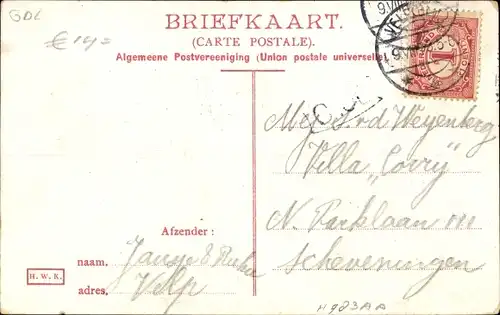 GDL
€ 14=
BRIEFKAART.
(CARTE POSTALE).
Algemeene Postvereeniging (Union postale universelle).
VELP
1
Mej. v d Weyenberg
Villa „Corry"
N. Parklaan
Scheveningen
Afzender:
naam.
adres. Velp
H. W. K.
H983AA